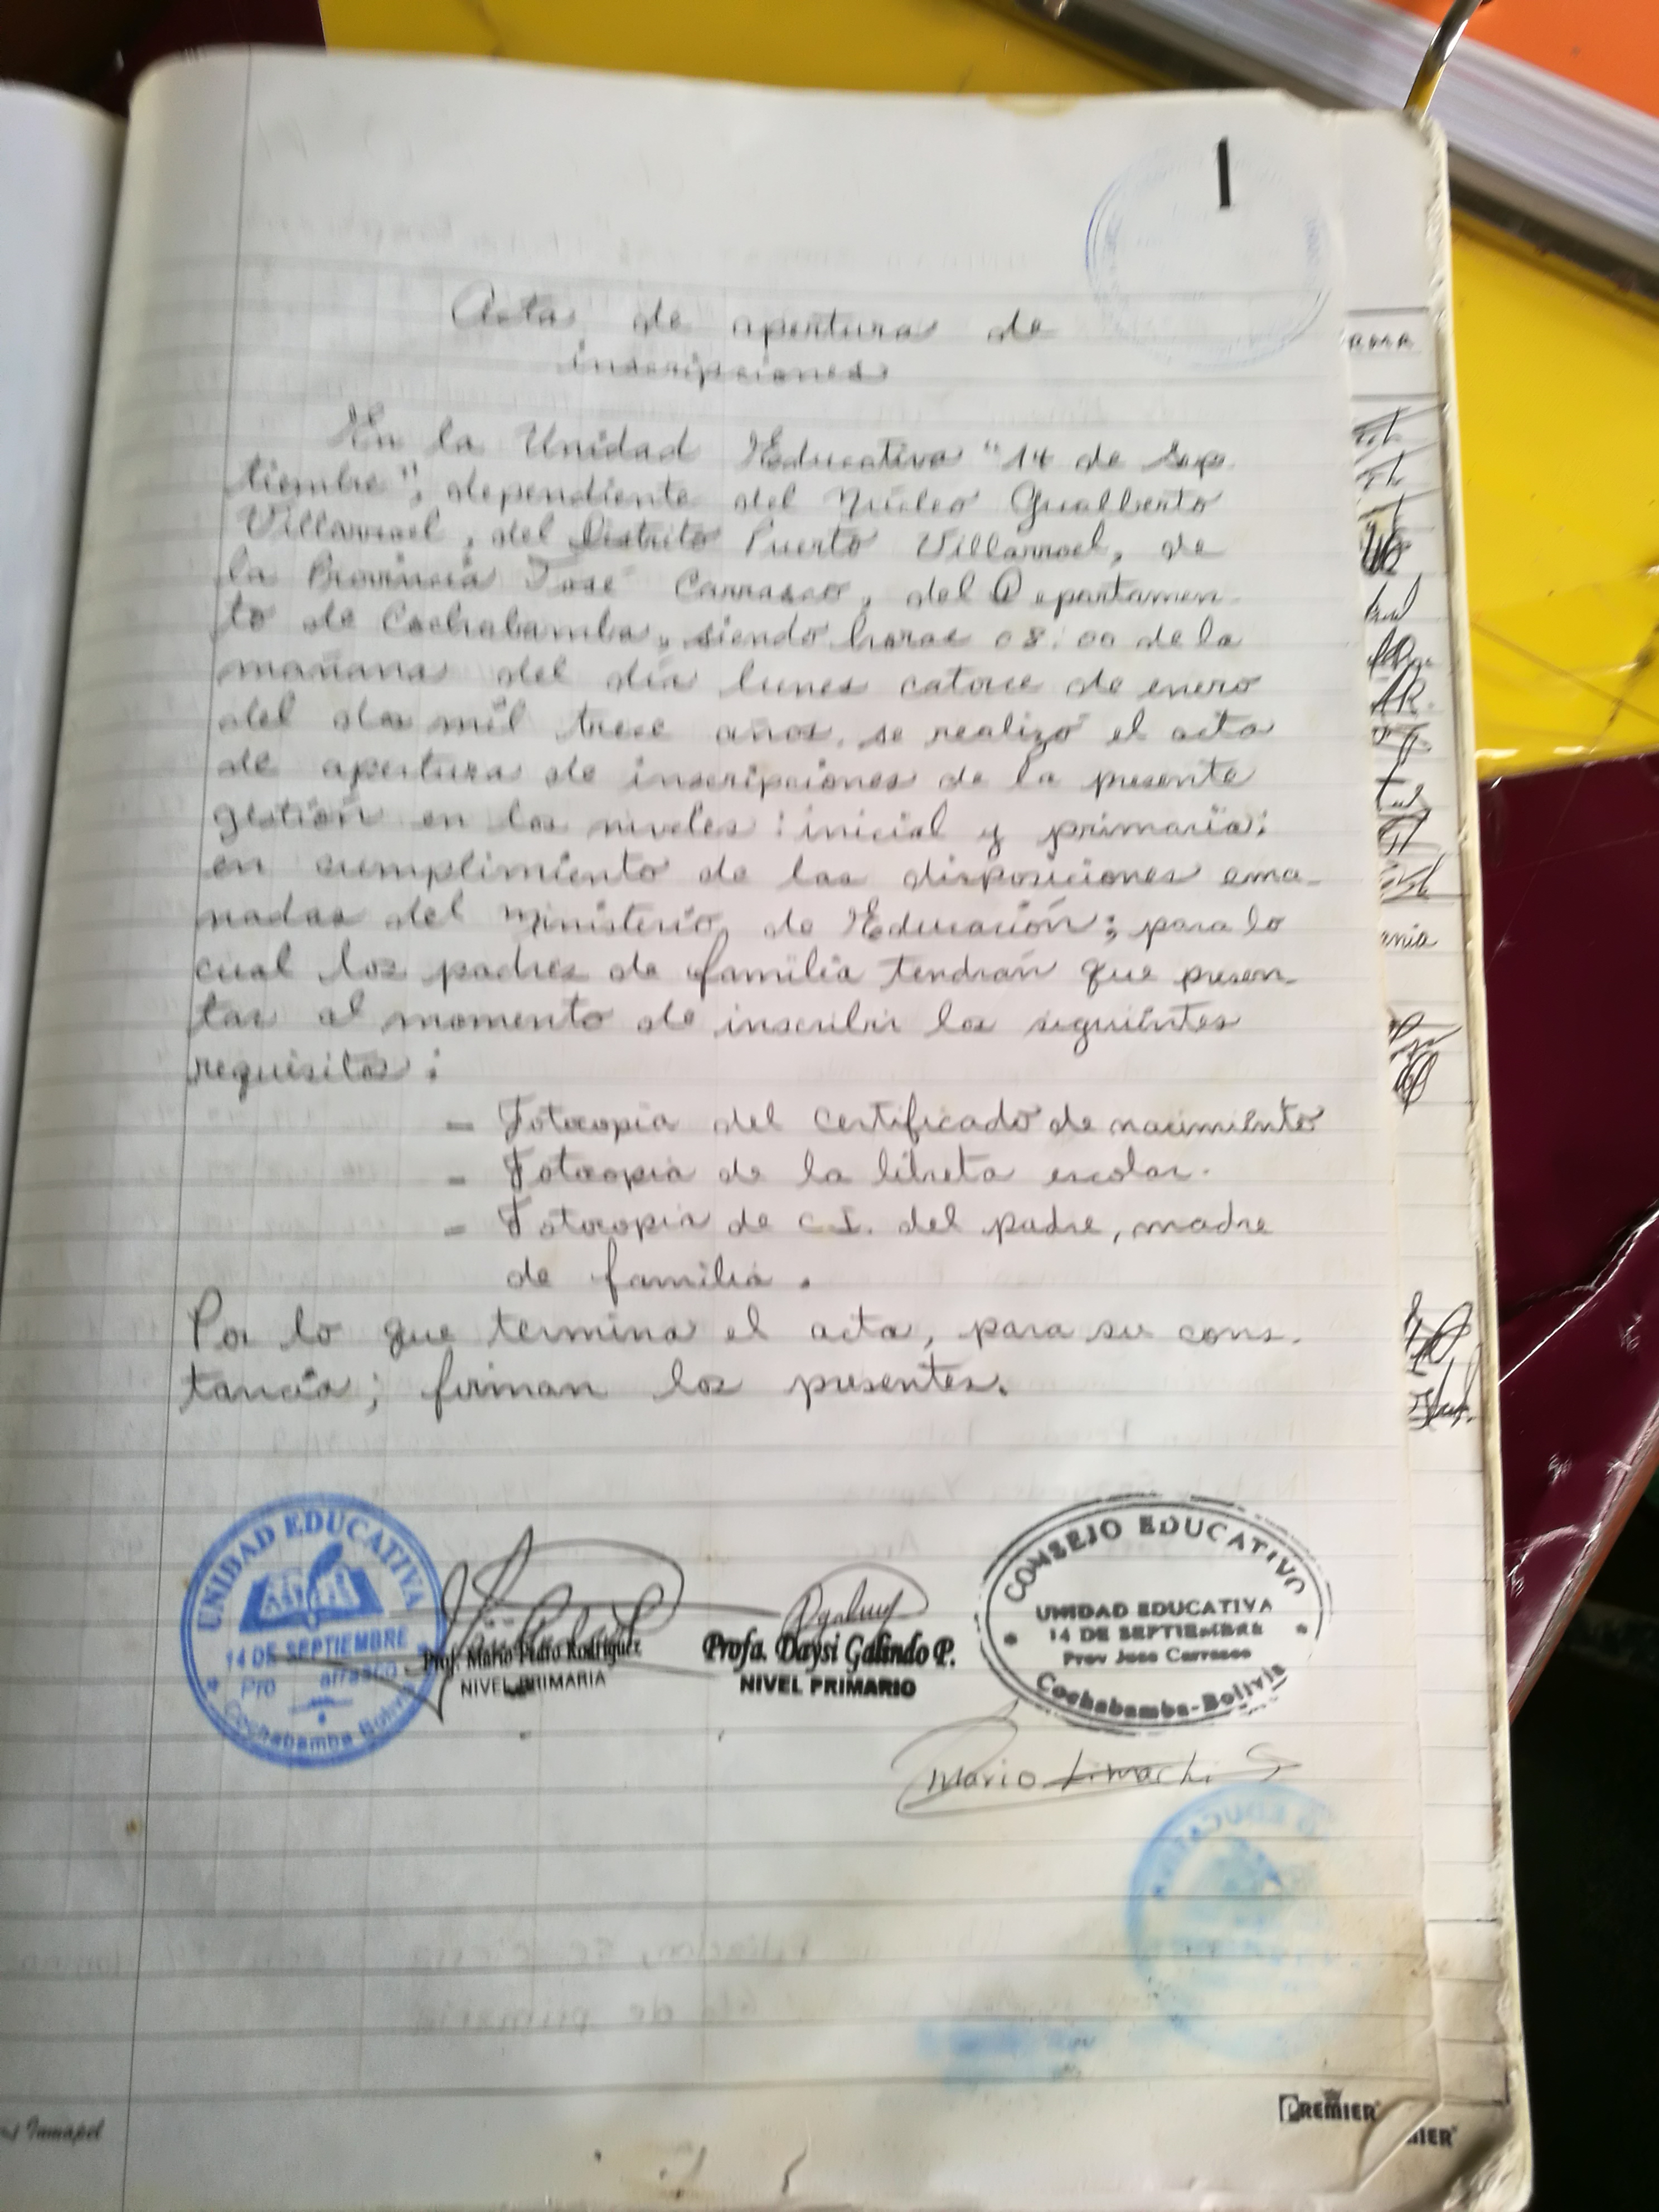 1
Acta de apertura de
inscripciones
En la Unidad Educativa "14 de Sep
tiembre", dependiente del Núcleo Gualberto
Villarroel, del Distrito Puerto Villarroel, de
la Provincia José Carrasco, del Departamen-
to de Cochabamba, siendo horas 08:00 de la
mañana del día lunes catorce de enero
del dos mil trece años. se realizó el acta
de apertura de inscripciones de la presente
gestión en los niveles: inicial y primaria;
en cumplimiento de las disposiciones ema-
nadas del Ministerio de Educación; para lo
cual los padres de familia tendrán que presen-
tar al momento de inscribir los siguientes
requisitos:
- Fotocopia del certificado de nacimiento
- Fotocopia de la libreta escolar.
- Fotocopia de C.I. del padre, madre
de familia.
Por lo que termina el acta, para su cons-
tancia; firman los presentes.
UNIDAD EDUCATIVA
14 DE SEPTIEMBRE
Pro arrasco
Cochabamba Bolivia
Prof. Mario Pedro Rodriguez
NIVEL PRIMARIA
Profa. Daysi Galindo P.
NIVEL PRIMARIO
CONSEJO EDUCATIVO
UNIDAD EDUCATIVA
14 DE SEPTIEMBRE
Prov Jose Carrasco
Cochabamba-Bolivia
Mario Limachi
PREMIER
MIER